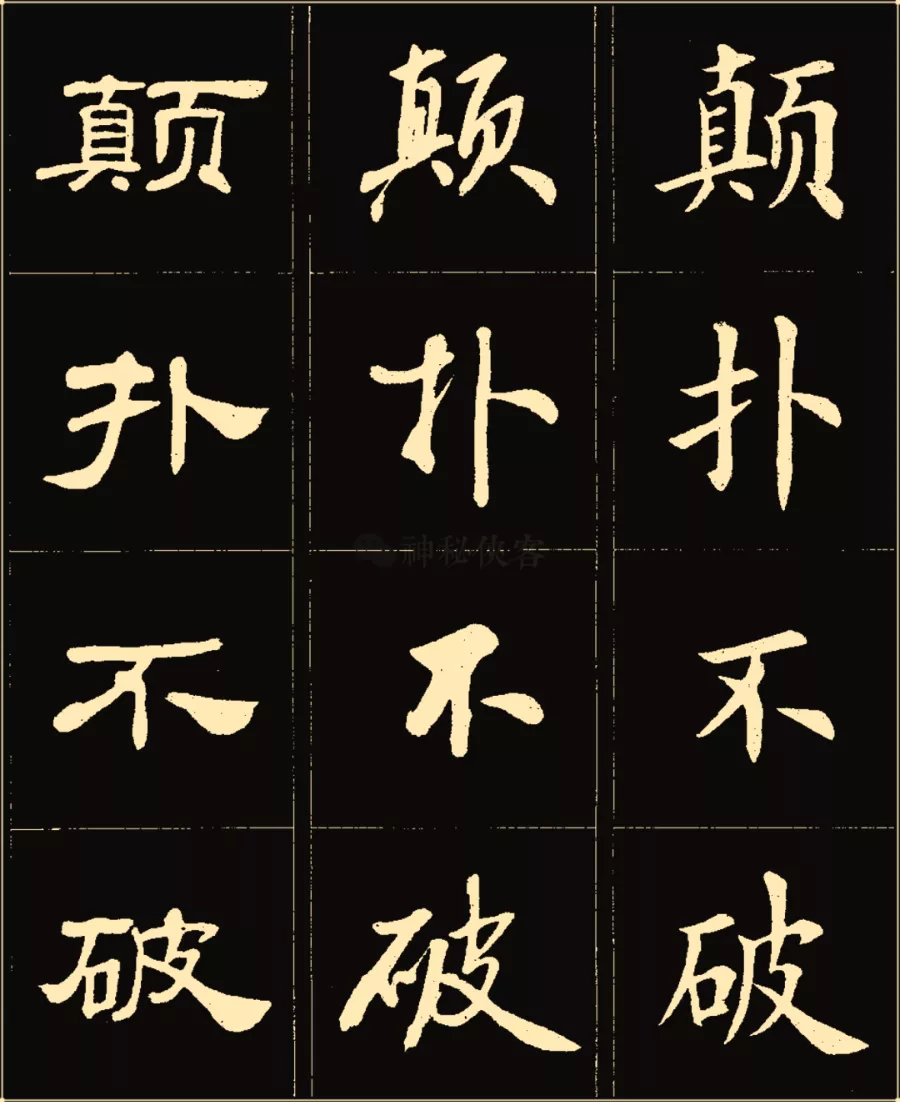 颠 颠 颠
扑 扑 扑
不 不 不
神秘侠客
破 破 破